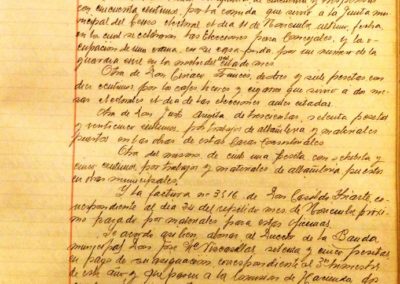 con cincuenta centimos, por la comida que sirvió a la Junta mu-
nicipal del Censo electoral el dia 11 de Noviembre, ultimo, fecha,
en la cual se celebraron las Elecciones para Concejales, y la o-
cupación de una cama, en su casa-fonda, por un numero de la
guardia civil en la noche del citado mes.
Otra de Don Francés, de tres y seis pesetas con
diez centimos por los cafes, licores y cigarros que sirvió a dos me-
sas electorales el dia de las elecciones antes citadas.
Otra de Don José de trescientas, setenta pesetas
y veinticinco centimos, por trabajos de albañileria y materiales
puestos en las obras de estas Casas Consistoriales.
Otra del mismo de cien una peseta con ochenta y
cinco centimos por trabajos y materiales de albañileria puestos
en obras municipales.
Y la factura nº 3516 de Don Casildo Iriarte, co-
rrespondiente al dia 24 del repetido mes de Noviembre proxi-
mo pasado por materiales para estas oficinas.
Se acordó asi bien abonar al Director de la Banda
municipal Don José Mª setenta y cinco pesetas
en pago de su asignación correspondiente al 3er trimestre
de este año y que pasen a la Comision de Hacienda, dos